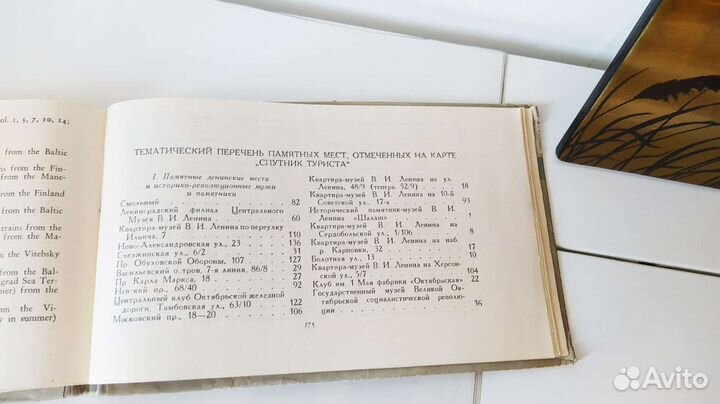 ol. 1, 5, 7, 10, 14;
from the Baltic
ns from the Fin-
from the Mane-
from the Finland
from the Baltic
trains from the
from the Ma-
from the Vitebsky
from the Bal-
grad Sea Ter-
from the
from the Vi-
y in summer)
ТЕМАТИЧЕСКИЙ ПЕРЕЧЕНЬ ПАМЯТНЫХ МЕСТ, ОТМЕЧЕННЫХ НА КАРТЕ
„СПУТНИК ТУРИСТА"
I. Памятные ленинские места
и историко-революционные музеи
и памятники
Смольный 82
Ленинградский филиал Центрального
Музея В. И. Ленина 60
Квартира-музей В. И. Ленина по переулку
Ильича, 7 110
Ново-Александровская ул., 23 136
Съезжинская ул., 6/2 31
Пр. Обуховской Обороны, 107 127
Васильевский о тров, 7-я линия, 86/8 29
Пр. Карла Маркса, 18 27
Невский пр., 68/40 92
Центральный клуб Октябрьской железной
дороги, Тамбовская ул., 63/10 122
Московский пр., 18—20 106
Квартира-музей В. И. Ленина на ул.
Ленина, 48/9 (теперь 52/9) 18
Квартира-музей В. И. Ленина на 10-й
Советской ул., 17-а 93
Исторический памятник-музей В. И.
Ленина «Шалаш» 1
Квартира-музей В. И. Ленина на
Сердобольской ул., 1/106 8
Квартира-музей В. И. Ленина на наб.
р. Карповки, 32 17
Болотная ул., 13 10
Квартира-музей В. И. Ленина на Херсон-
ской ул., 5/7 104
Клуб им. 1 Мая фабрики «Октябрьская» 22
Государственный музей Великой Ок-
тябрьской социалистической револю-
ции 36
175
Avito